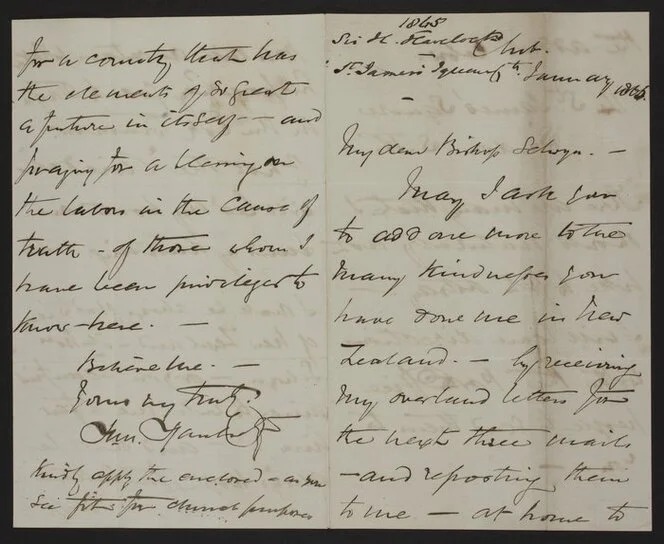 1865
Sir H. Havelock
Club.
St. James's Square
January 1865.
My dear Bishop Selwyn. —
May I ask you
to add one more to the
many kindnesses you
have done me in New
Zealand. — by receiving
my overland letters for
the next three mails
— and reposting them
to me — at home to
for a country that has
the elements of so great
a future in itself — and
praying for a blessing on
the labors in the cause of
truth — of those whom I
have been privileged to
know — here. —
Believe me. —
Yours my truly.
Kindly apply the enclosed — as you
see fit — for church purposes